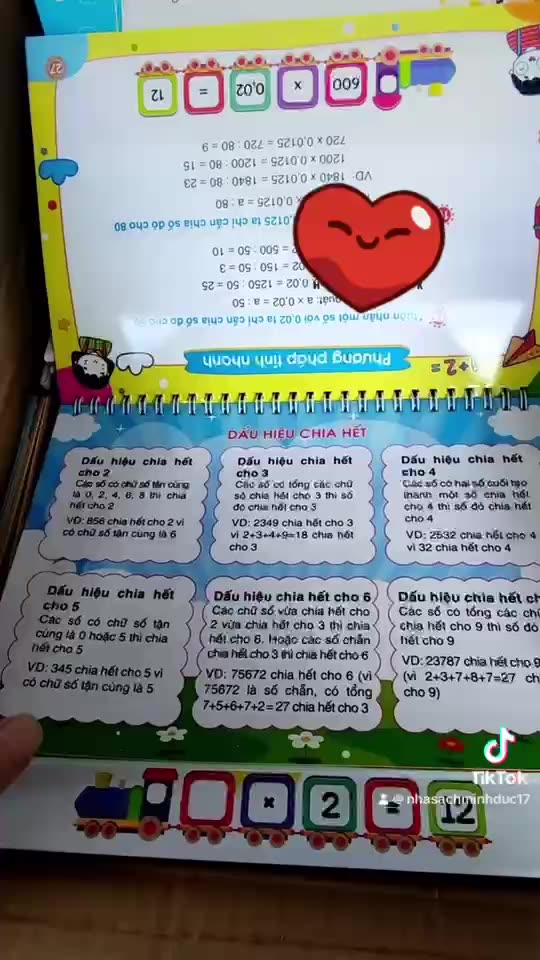 27
600 x 0,02 = 12
720 x 0,0125 = 720 : 80 = 9
1200 x 0,0125 = 1200 : 80 = 15
VD: 1840 x 0,0125 = 1840 : 80 = 23
x 0,0125 = a : 80
0,0125 ta chỉ cần chia số đó cho 80
= 500 : 50 = 10
02 = 150 : 50 = 3
0,02 = 1250 : 50 = 25
quát: a x 0,02 = a : 50
nhân một số với 0,02 ta chỉ cần chia số đó cho
Phương pháp tính nhanh
+2=
DẤU HIỆU CHIA HẾT
Dấu hiệu chia hết
cho 2
Các số có chữ số tận cùng
là 0, 2, 4, 6, 8 thì chia
hết cho 2
VD: 856 chia hết cho 2 vì
có chữ số tận cùng là 6
Dấu hiệu chia hết
cho 3
Các số có tổng các chữ
số chia hết cho 3 thì số
đó chia hết cho 3
VD: 2349 chia hết cho 3
vì 2+3+4+9=18 chia hết
cho 3
Dấu hiệu chia hết
cho 4
Các số có hai số cuối tạo
thành một số chia hết
cho 4 thì số đó chia hết
cho 4
VD: 2532 chia hết cho 4
vì 32 chia hết cho 4
Dấu hiệu chia hết
cho 5
Các số có chữ số tận
cùng là 0 hoặc 5 thì chia
hết cho 5
VD: 345 chia hết cho 5 vì
có chữ số tận cùng là 5
Dấu hiệu chia hết cho 6
Các chữ số vừa chia hết cho
2 vừa chia hết cho 3 thì chia
hết cho 6. Hoặc các số chẵn
chia hết cho 3 thì chia hết cho 6
VD: 75672 chia hết cho 6 (vì
75672 là số chẵn, có tổng
7+5+6+7+2=27 chia hết cho 3
Dấu hiệu chia hết ch
Các số có tổng các chữ
chia hết cho 9 thì số đó
hết cho 9
VD: 23787 chia hết cho 9
(vì 2+3+7+8+7=27 ch
cho 9)
x 2 = 12
TikTok
@nhasachminhduc17